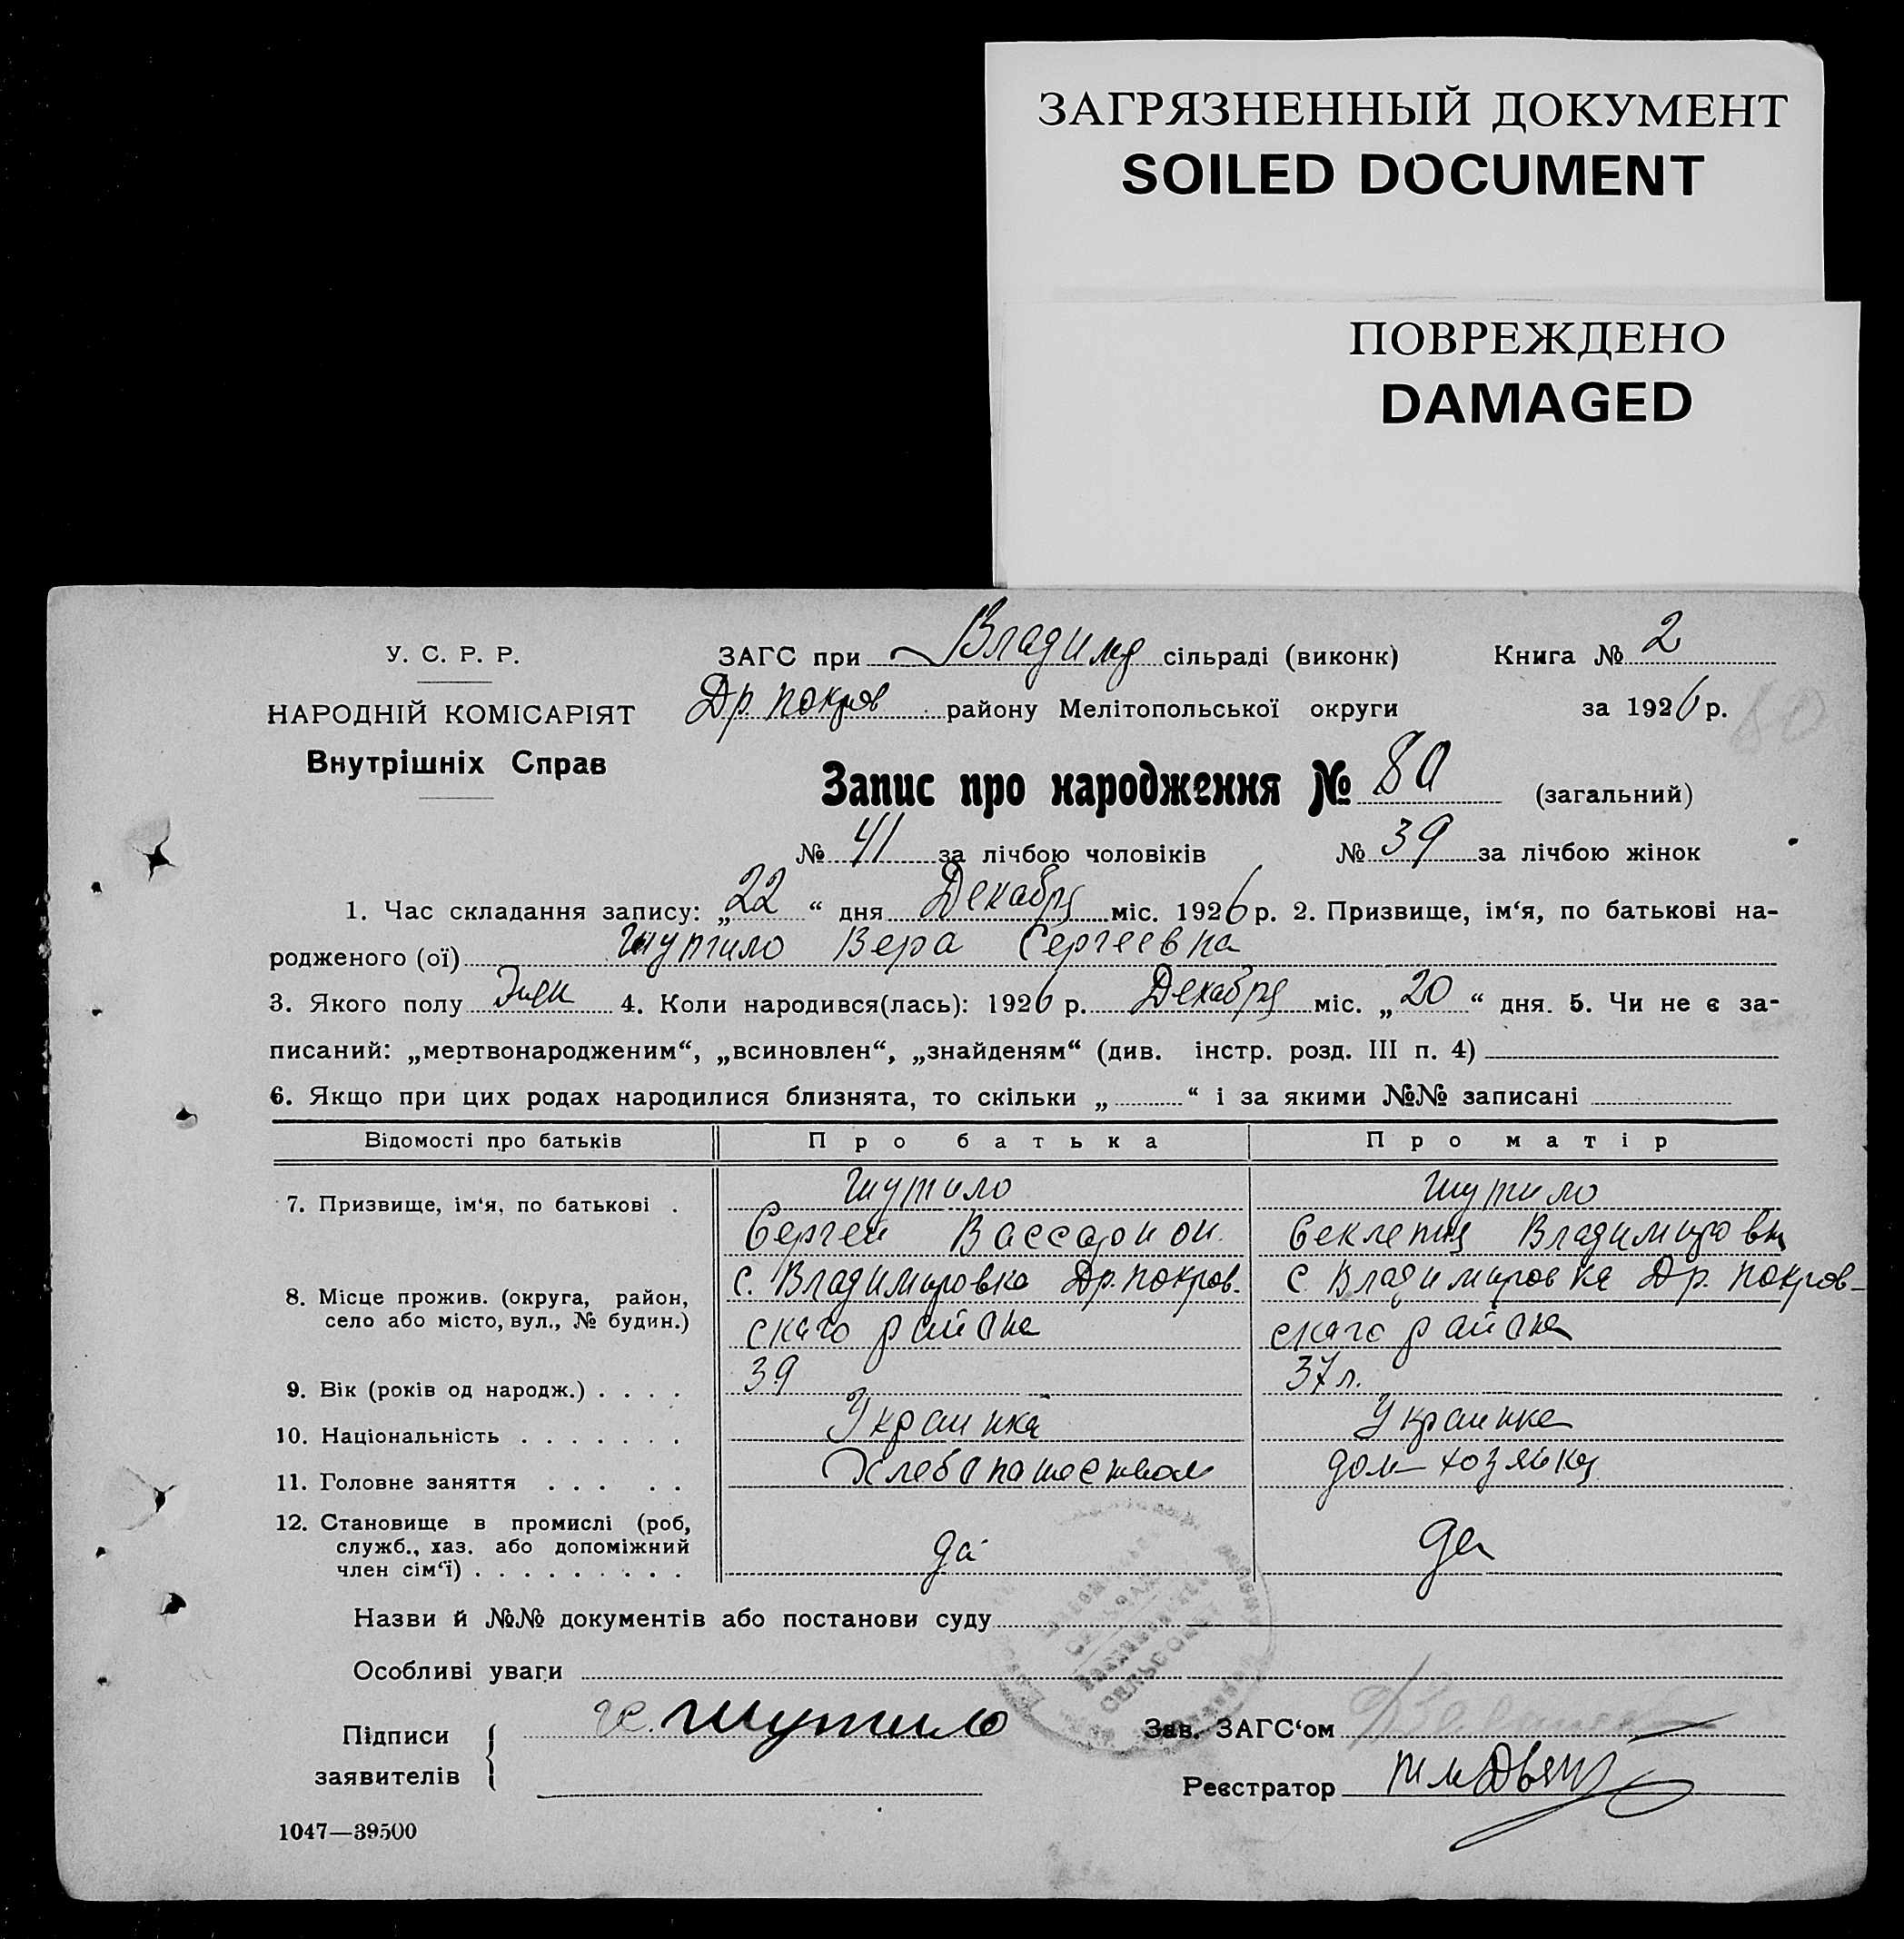 ЗАГРЯЗНЕННЫЙ ДОКУМЕНТ
SOILED DOCUMENT
ПОВРЕЖДЕНО
DAMAGED
У. С. Р. Р.
НАРОДНІЙ КОМІСАРІЯТ
Внутрішніх Справ
ЗАГС при Владимр сільраді (виконк) Книга № 2
Др. покров району Мелітопольської округи за 1926 р.
80
Запис про народження № 80 (загальний)
№ 41 за лічбою чоловіків № 39 за лічбою жінок
1. Час складання запису: „22“ дня Декабря міс. 1926 р. 2. Призвище, ім‘я, по батькові на-
родженого (ої) Шутило Вера Сергеевна
3. Якого полу Жен 4. Коли народився(лась): 1926 р. Декабря міс. „20“ дня. 5. Чи не є за-
писаний: „мертвонародженим“, „всиновлен“, „знайденям“ (див. інстр. розд. III п. 4)
6. Якщо при цих родах народилися близнята, то скільки „ “ і за якими №№ записані
Відомості про батьків Про батька Про матір
7. Призвище, ім‘я, по батькові . Шутило Шутило
Сергей Вассарион. Секлетия Владимировн
8. Місце прожив. (округа, район, село або місто, вул., № будин.) с. Владимировка Др. покров- с. Владимировка Др. покров-
скаго района скаго района
9. Вік (років од народж.) . . . . 39 37 л.
10. Національність . . . . . . . Украинка Украинка
11. Головне заняття . . . . . Хлебопашеством дом-хозяйка
12. Становище в промислі (роб,
служб., хаз. або допоміжний
член сім‘ї) . . . . . . . . . да да
Назви й №№ документів або постанови суду
Особливі уваги
Підписи заявителів Шутило
Зав. ЗАГС‘ом
Реєстратор
1047—39500